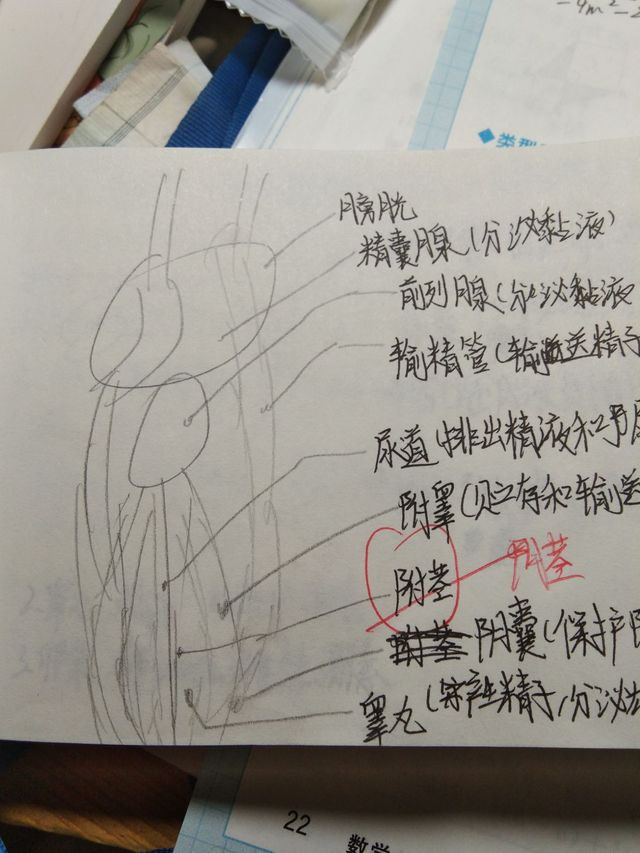 -4m²-2
类型
膀胱
精囊腺(分泌黏液)
前列腺(分泌黏液
输精管(输送精子
尿道(排出精液和
附睾(贮存和输送
附茎 阴茎
附茎 阴囊(保护
睾丸(产生精子,分泌
22 数学